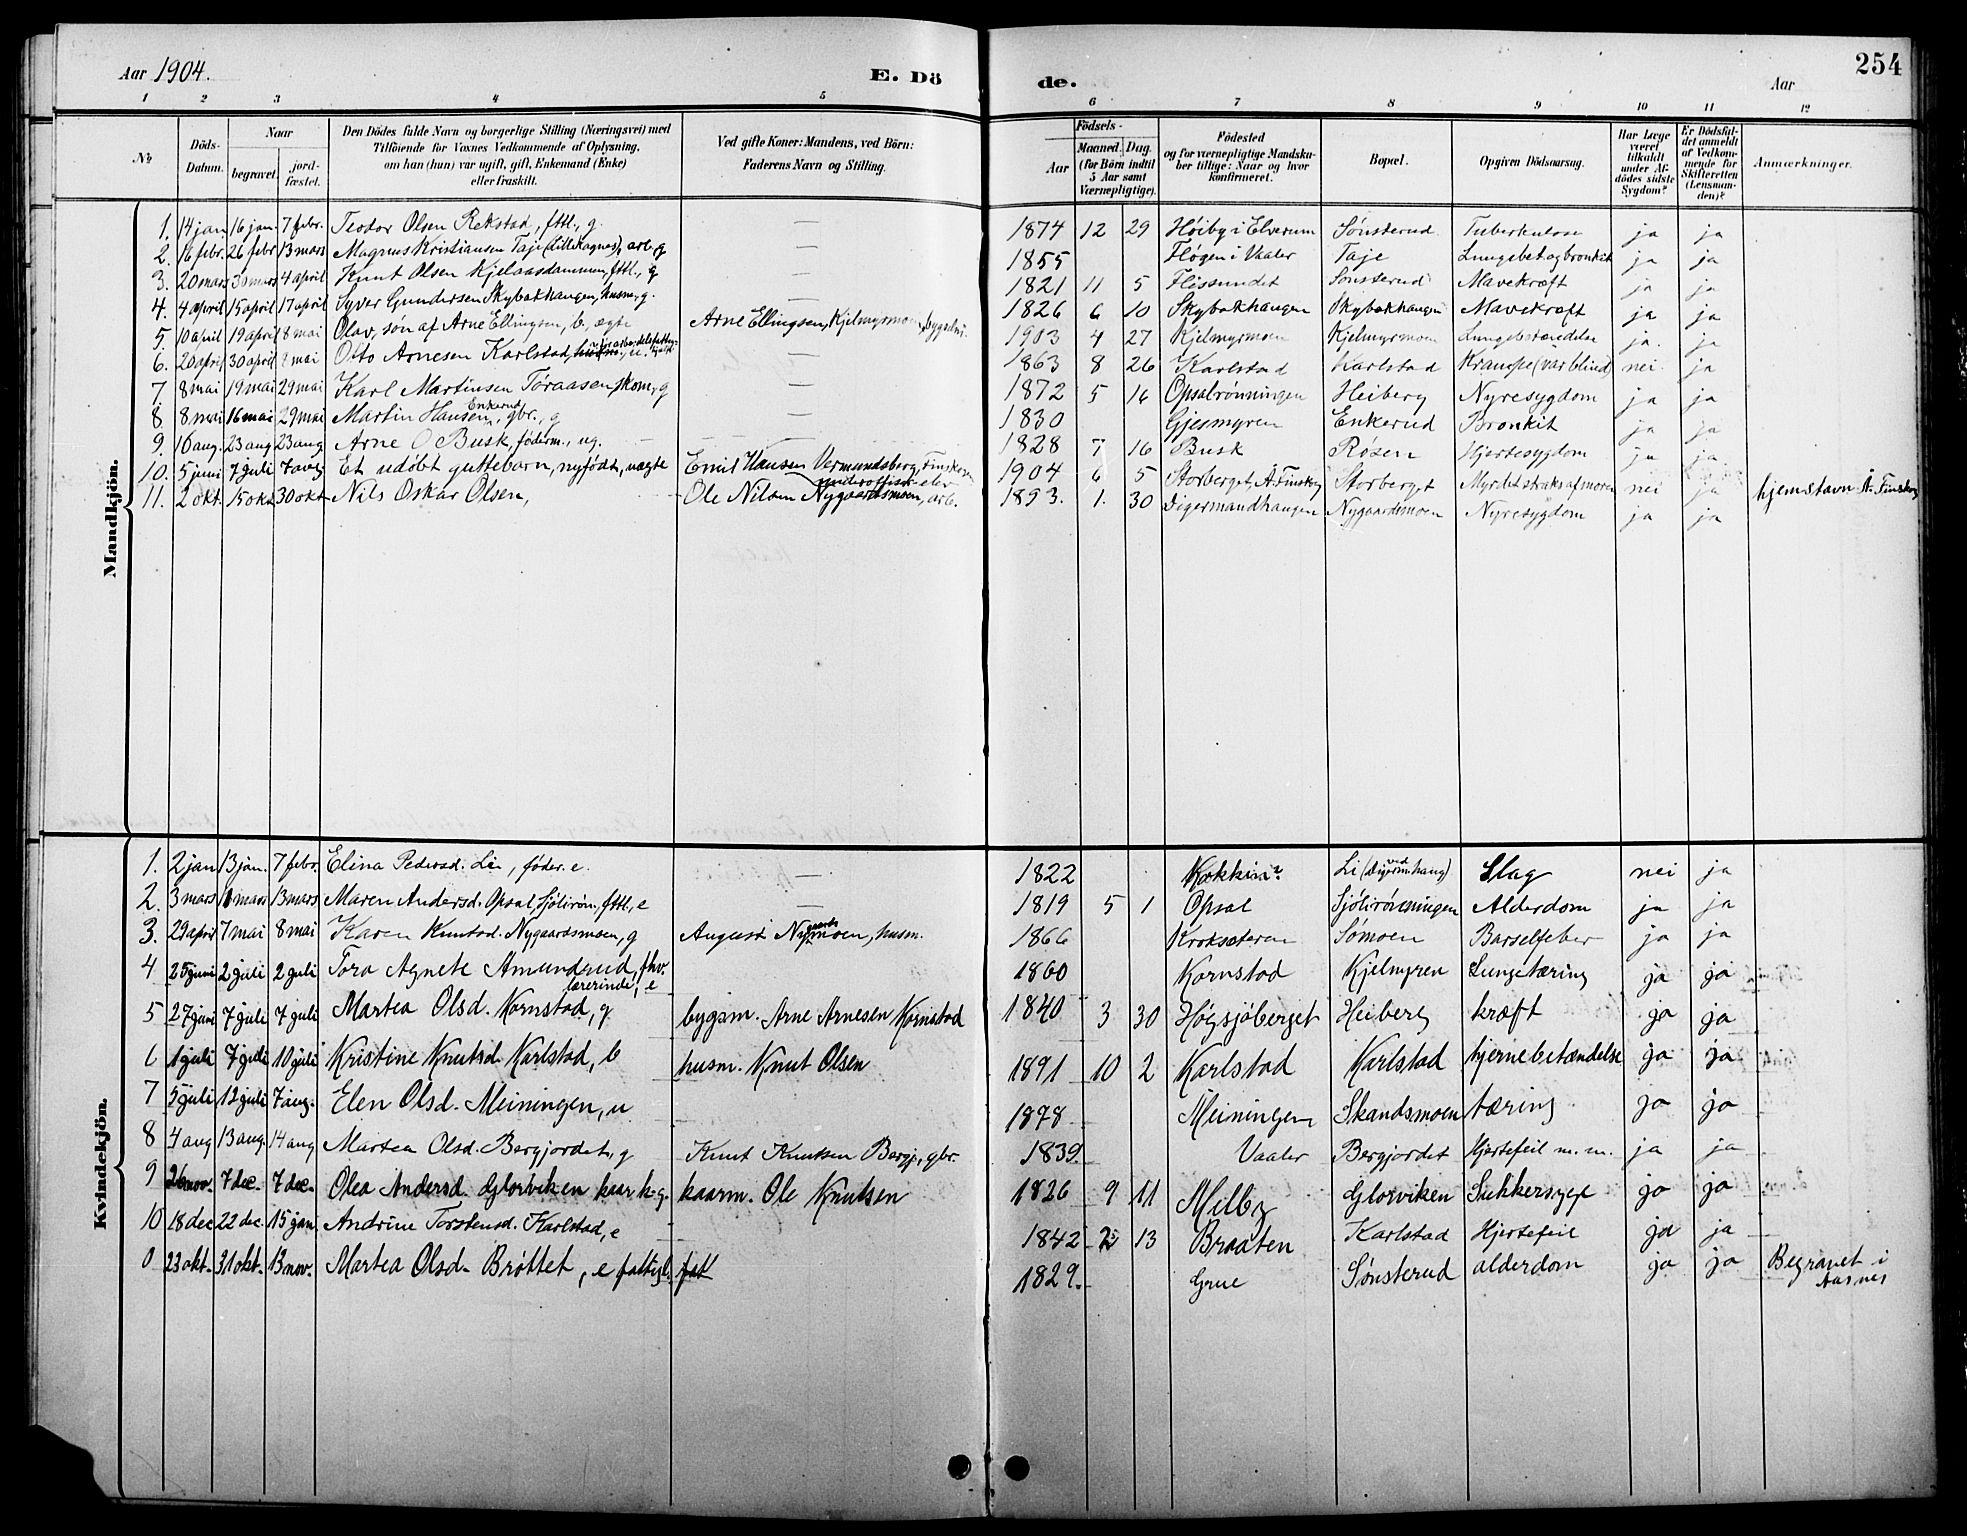 Aar 1904. E. Dö
1 2 3 4 5
No Döds-Datum. Naar begravet. jord-fæstet. Den Dödes fulde Navn og borgerlige Stilling (Næringsvei) med Tilföiende for Voxnes Vedkommende af Oplysning, om han (hun) var ugift, gift, Enkemand (Enke) eller fraskilt. Ved gifte Koner: Mandens, ved Börn: Faderens Navn og Stilling.
Mandkjön.
1. 14 jan 16 jan. 7 febr. Teodor Olsen Rekstad, fttl., g. —
2. 16 febr. 26 febr 13 mars Magnus Kristiansen Taje (Lillekagnes), arb. g —
3. 20 mars 30 mars 4 april Knut Olsen Kjelaasdammen, fttl., g —
4. 4 april 15 april 17 april Syver Gundersen Skybakhaugen, husm., g. —
5. 10 april 19 april 8 mai Olav, søn af Arne Ellingsen, b., ægte Arne Ellingsen, Kjelmyrmoen, bygselm.
6. 20 april 30 april 8 mai Otto Arnesen Karlstad, u. —
7 8 mai 19 mai 29 mai Karl Martinsen Toraasen, skom., g —
8 8 mai 16 mai 29 mai Martin Hansen Enkerud, gbr., g —
9. 16 aug. 23 aug 23 aug Arne O Busk, føderm., ug. —
10. 5 juni 7 juli 7 aug Et udøbt guttebarn, nyfødt, uægte Emil Hansen Vermundsberg, Finskoven underofficerelev
11. 2 okt. 15 okt 30 okt Nils Oskar Olsen, Ole Nilsen Nygaardsmoen, arb.
Kvindekjön.
1. 2 jan 13 jan. 7 febr. Elina Pedersd. Li, føder. e. —
2. 3 mars 11 mars 13 mars Maren Andersd. Opsal, Sjølirøn., fttl., e —
3. 29 april 7 mai 8 mai Karen Knutsd. Nygaardsmoen, g August Nygaardsmoen, husm.
4 25 juni 2 juli 2 juli Tora Agnete Amundrud, fhv. lærerinde, e
5 27 juni 7 juli 7 juli Martea Olsd. Kornstad, g bygsm. Arne Arnesen Kornstad
6 1 juli 7 juli 10 juli Kristine Knutsd. Karlstad, b husm. Knut Olsen
7 5 juli 12 juli 7 aug. Elen Olsd. Meiningen, u
8 4 aug 13 aug. 14 aug Martea Olsd. Bergjordet, g Knut Knutsen Bergj., gbr.
9 26 nov. 7 dec. 7 dec. Olea Andersd. Glorviken kaar k. g. kaarm. Ole Knutsen
10 18 dec 22 dec. 15 jan. Andrine Torstensd. Karlstad, e
0 23 okt. 31 okt. 13 nov. Martea Olsd. Brøttet, e fattigl.
de. Aar 254
6 7 8 9 10 11 12
Aar Födsels- Maaned. Dag. (for Börn indtil 5 Aar samt Værnepligtige). Födested og for værnepligtige Mandskaber tillige: Naar og hvor konfirmeret. Bopæl. Opgiven Dödsaarsag. Har Læge været tilkaldt under Afdödes sidste Sygdom? Er Dödsfaldet anmeldt af Vedkommende for Skifteretten (Lensmanden)? Anmærkninger.
1874 12 29 Høiby i Elverum Sønsterud Tuberkulose ja ja
1855 Fløgen i Vaaler Taje Lungebet og bronkit ja ja
1821 11 5 Flissundet Sønsterud Mavekræft ja ja
1826 6 10 Skybakhaugen Skybakhaugen Mavekræft ja ja
1903 4 27 Kjelmyrmoen Kjelmyrmoen Lungebetændelse ja. ja
1863 8 26 Karlstad Karlstad Krampe (var blind) nei ja
1872 5 16 Opsalrønningen Heiberg Nyresygdom ja ja
1830 Gjesmyren Enkerud Bronkit ja ja
1828 7 16 Busk Røsen Hjertesygdom ja ja
1904 6 5 Storberget, Å. Finskog Storberget Myrdet straks af moren nei ja hjemstavn Å. Finskog
1893. 1. 30 Digermandhaugen Nygaardsmoen Nyresygdom ja ja
1822 Kokkin? Li (ved Digermhaug) Slag nei ja
1819 5 1 Opsal Sjølirønningen Alderdom ja ja
1866 Kroksæteren Sømoen Barselfeber ja ja
1860 Kornstad Kjelmyren Lungetæring ja ja
1840 3 30 Høgsjøberget Heiberg kræft ja ja
1891 10 2 Karlstad Karlstad hjernebetændelse ja ja
1878 Meiningen Skandsmoen tæring ja ja
1839. Vaaler Bergjordet Hjertefeil m. m. ja ja
1826 9 11 Melby Glorviken Sukkersyge ja ja
1842 2 13 Braaten Karlstad Hjertefeil ja ja
1829. Grue Sønsterud alderdom ja ja Begravet i Aasnes